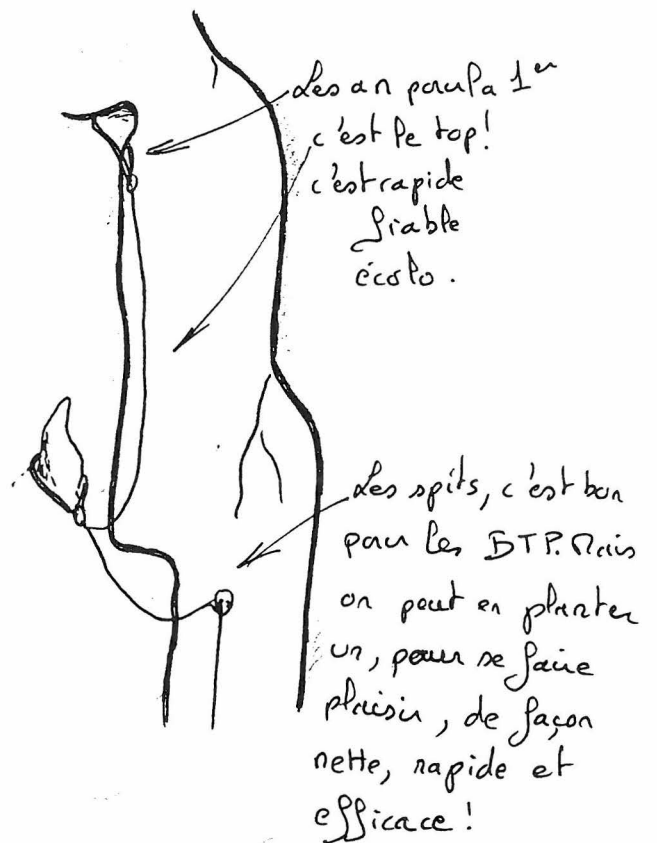 Les an pour la 1er
c'est le top!
c'est rapide
fiable
écolo.
Les spits, c'est bon
pour les BTP. Mais
on peut en planter
un, pour se faire
plaisir, de façon
nette, rapide et
efficace!